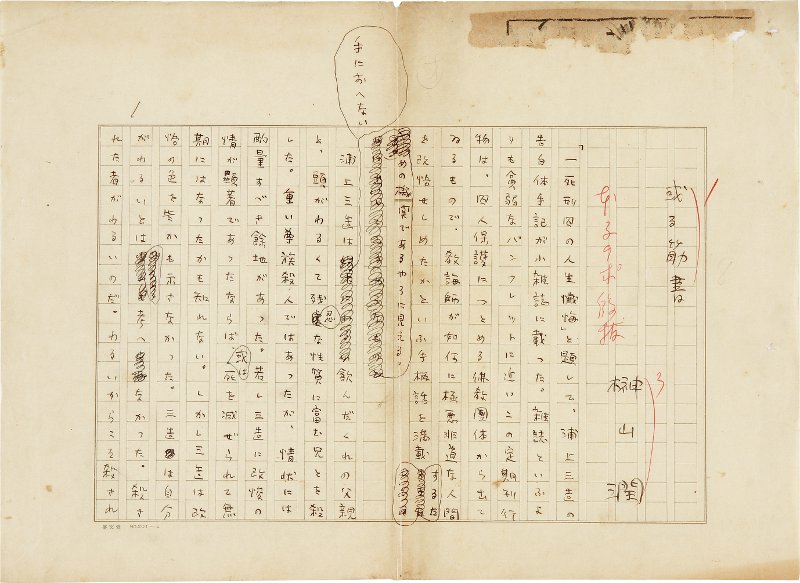 或る筋書は
榊山潤
「一死刑囚の人生懺悔」と題して、浦上三造の
告白体手記がＡ雑誌に載った。雑誌といふよ
りも貧弱なパンフレットに近いこの定期刊行
物は、囚人保護につとめる佛教團体から出て
ゐるもので、教誨師が如何に極悪非道な人間
を改悟せしめたかといふ手柄話を満載
するための機関であるやうに見える。
手におへない
浦上三造は飲んだくれの父親
と、頭がわるくて残忍な性質に富む兄とを殺
した。重い尊族殺人ではあったが、情状には
酌量すべき餘地があった。若し三造に改悛の
情が顕著であったならば、或は死を減ぜられて無
期にはなったかも知れない。しかし三造は改
悟の色を些かも示さなかった。三造は自分
がわるいとは考へなかった。殺さ
れた者がわるいのだ。わるいからこそ殺され